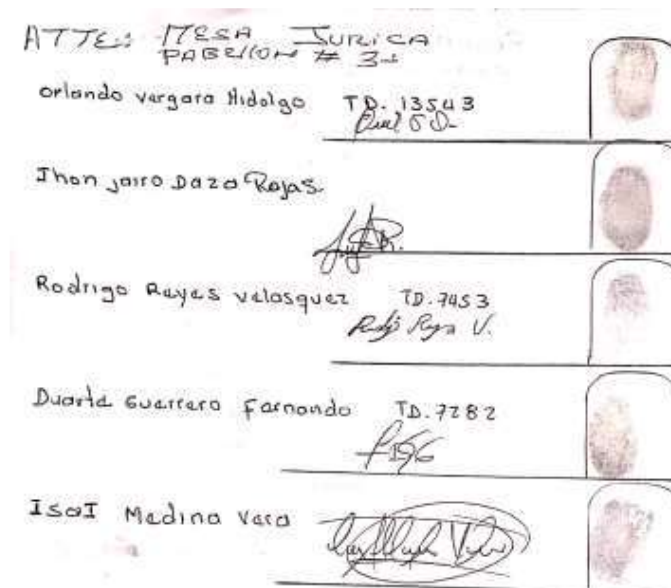 ATTE: MESA JURICA
PABELLON # 3
Orlando vergara Hidalgo TD. 13543
Jhon jairo Daza Rojas.
Rodrigo Reyes velasquez TD. 7453
Rodrigo Reyes V.
Duarte Guerrero Fernando TD. 7282
IsaI Medina Vera